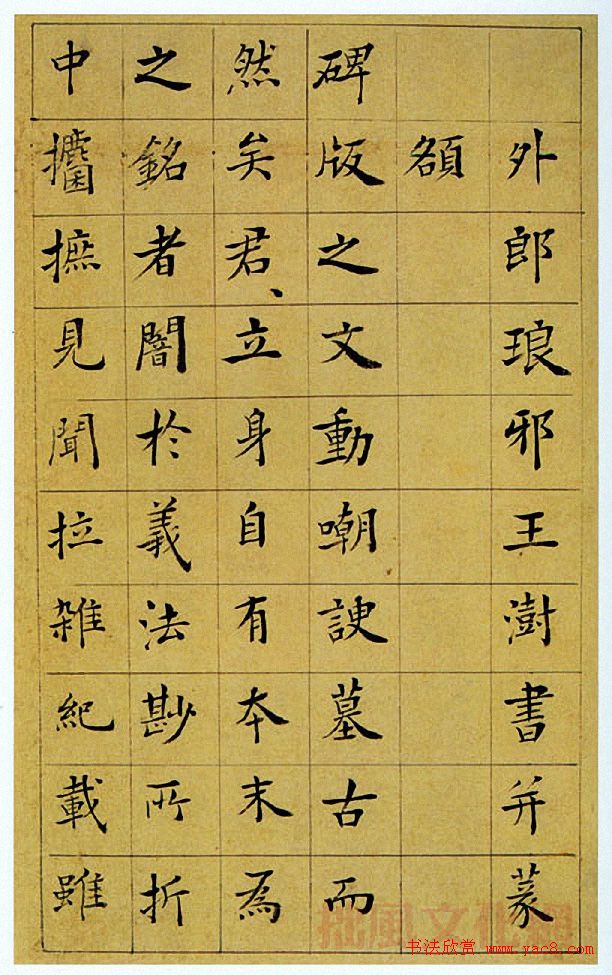 外郎琅邪王澍書并篆
額
碑版之文動嘲諛墓古而
然矣君、立身自有本末為
之銘者闇於義法尠所折
中攟摭見聞拉雜紀載雖
拙風文化網
书法欣赏 www.yac8.com